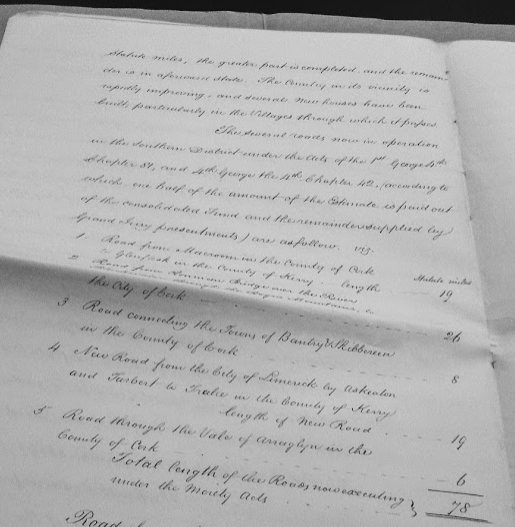 Statute miles, the greater part is completed and the remain
der is in a forward state. The Country in its vicinity is
rapidly improving, and several new houses have been
built, particularly in the Villages through which it passes.
The several roads now in operation
in the Southern District under the Acts of the 1st George 4th
Chapter 81, and 4th George the 4th Chapter 42, (according to
which one half of the amount of the Estimate is paid out
of the consolidated Fund and the remainder supplied by
Grand Jury presentments) are as follow. viz.
Statute miles
1 Road from Macroom in the County of Cork
to Glenflesk in the County of Kerry length 19
2 Road from Bridge over the River
through the Mountains to
the City of Cork 26
3 Road connecting the Towns of Bantry & Skibbereen
in the County of Cork 8
4 New Road from the City of Limerick by Askeaton
and Tarbert to Tralee in the County of Kerry
length of New Road 19
5 Road through the Vale of Arraglyn in the
County of Cork 6
Total length of the Roads now executing
under the Moiety Acts 78
Road